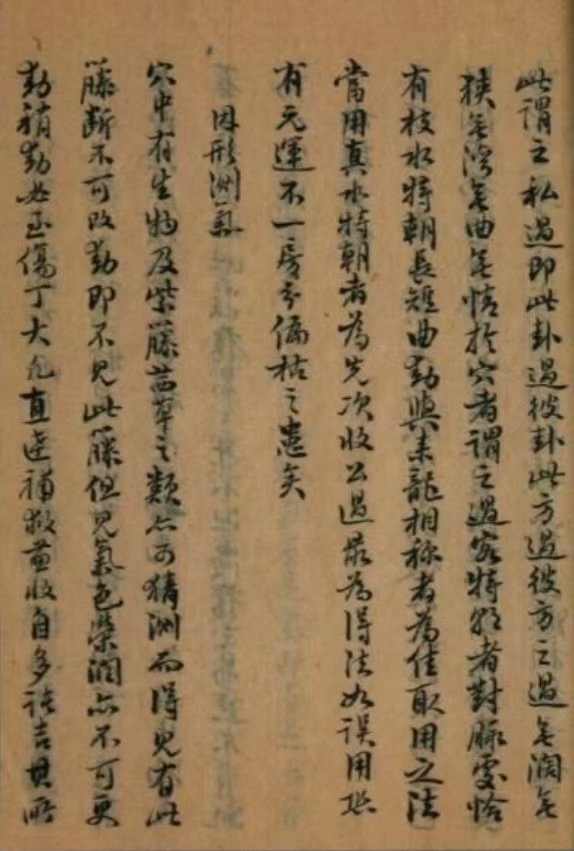 此謂之私過即此卦過彼卦此方過彼方之過無濶無
狹無灣無曲無情於穴者謂之過客特朝者對脉處恰
有枝水特朝長短曲動與来龍相称者為佳取用之法
當用真水特朝者為先次收公過最為得法如誤用恐
有元運不一房分偏枯之患矣
因形測氣
穴中有生物及紫藤茜草之類亦可猜測而得見有此
藤断不可改動即不見此藤但見氣色榮潤亦不可更
動稍動必至傷丁大凡直達補救兼收自多諸吉其所